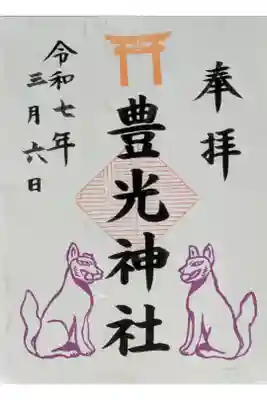 奉拝
豊光神社
令和七年
三月六日